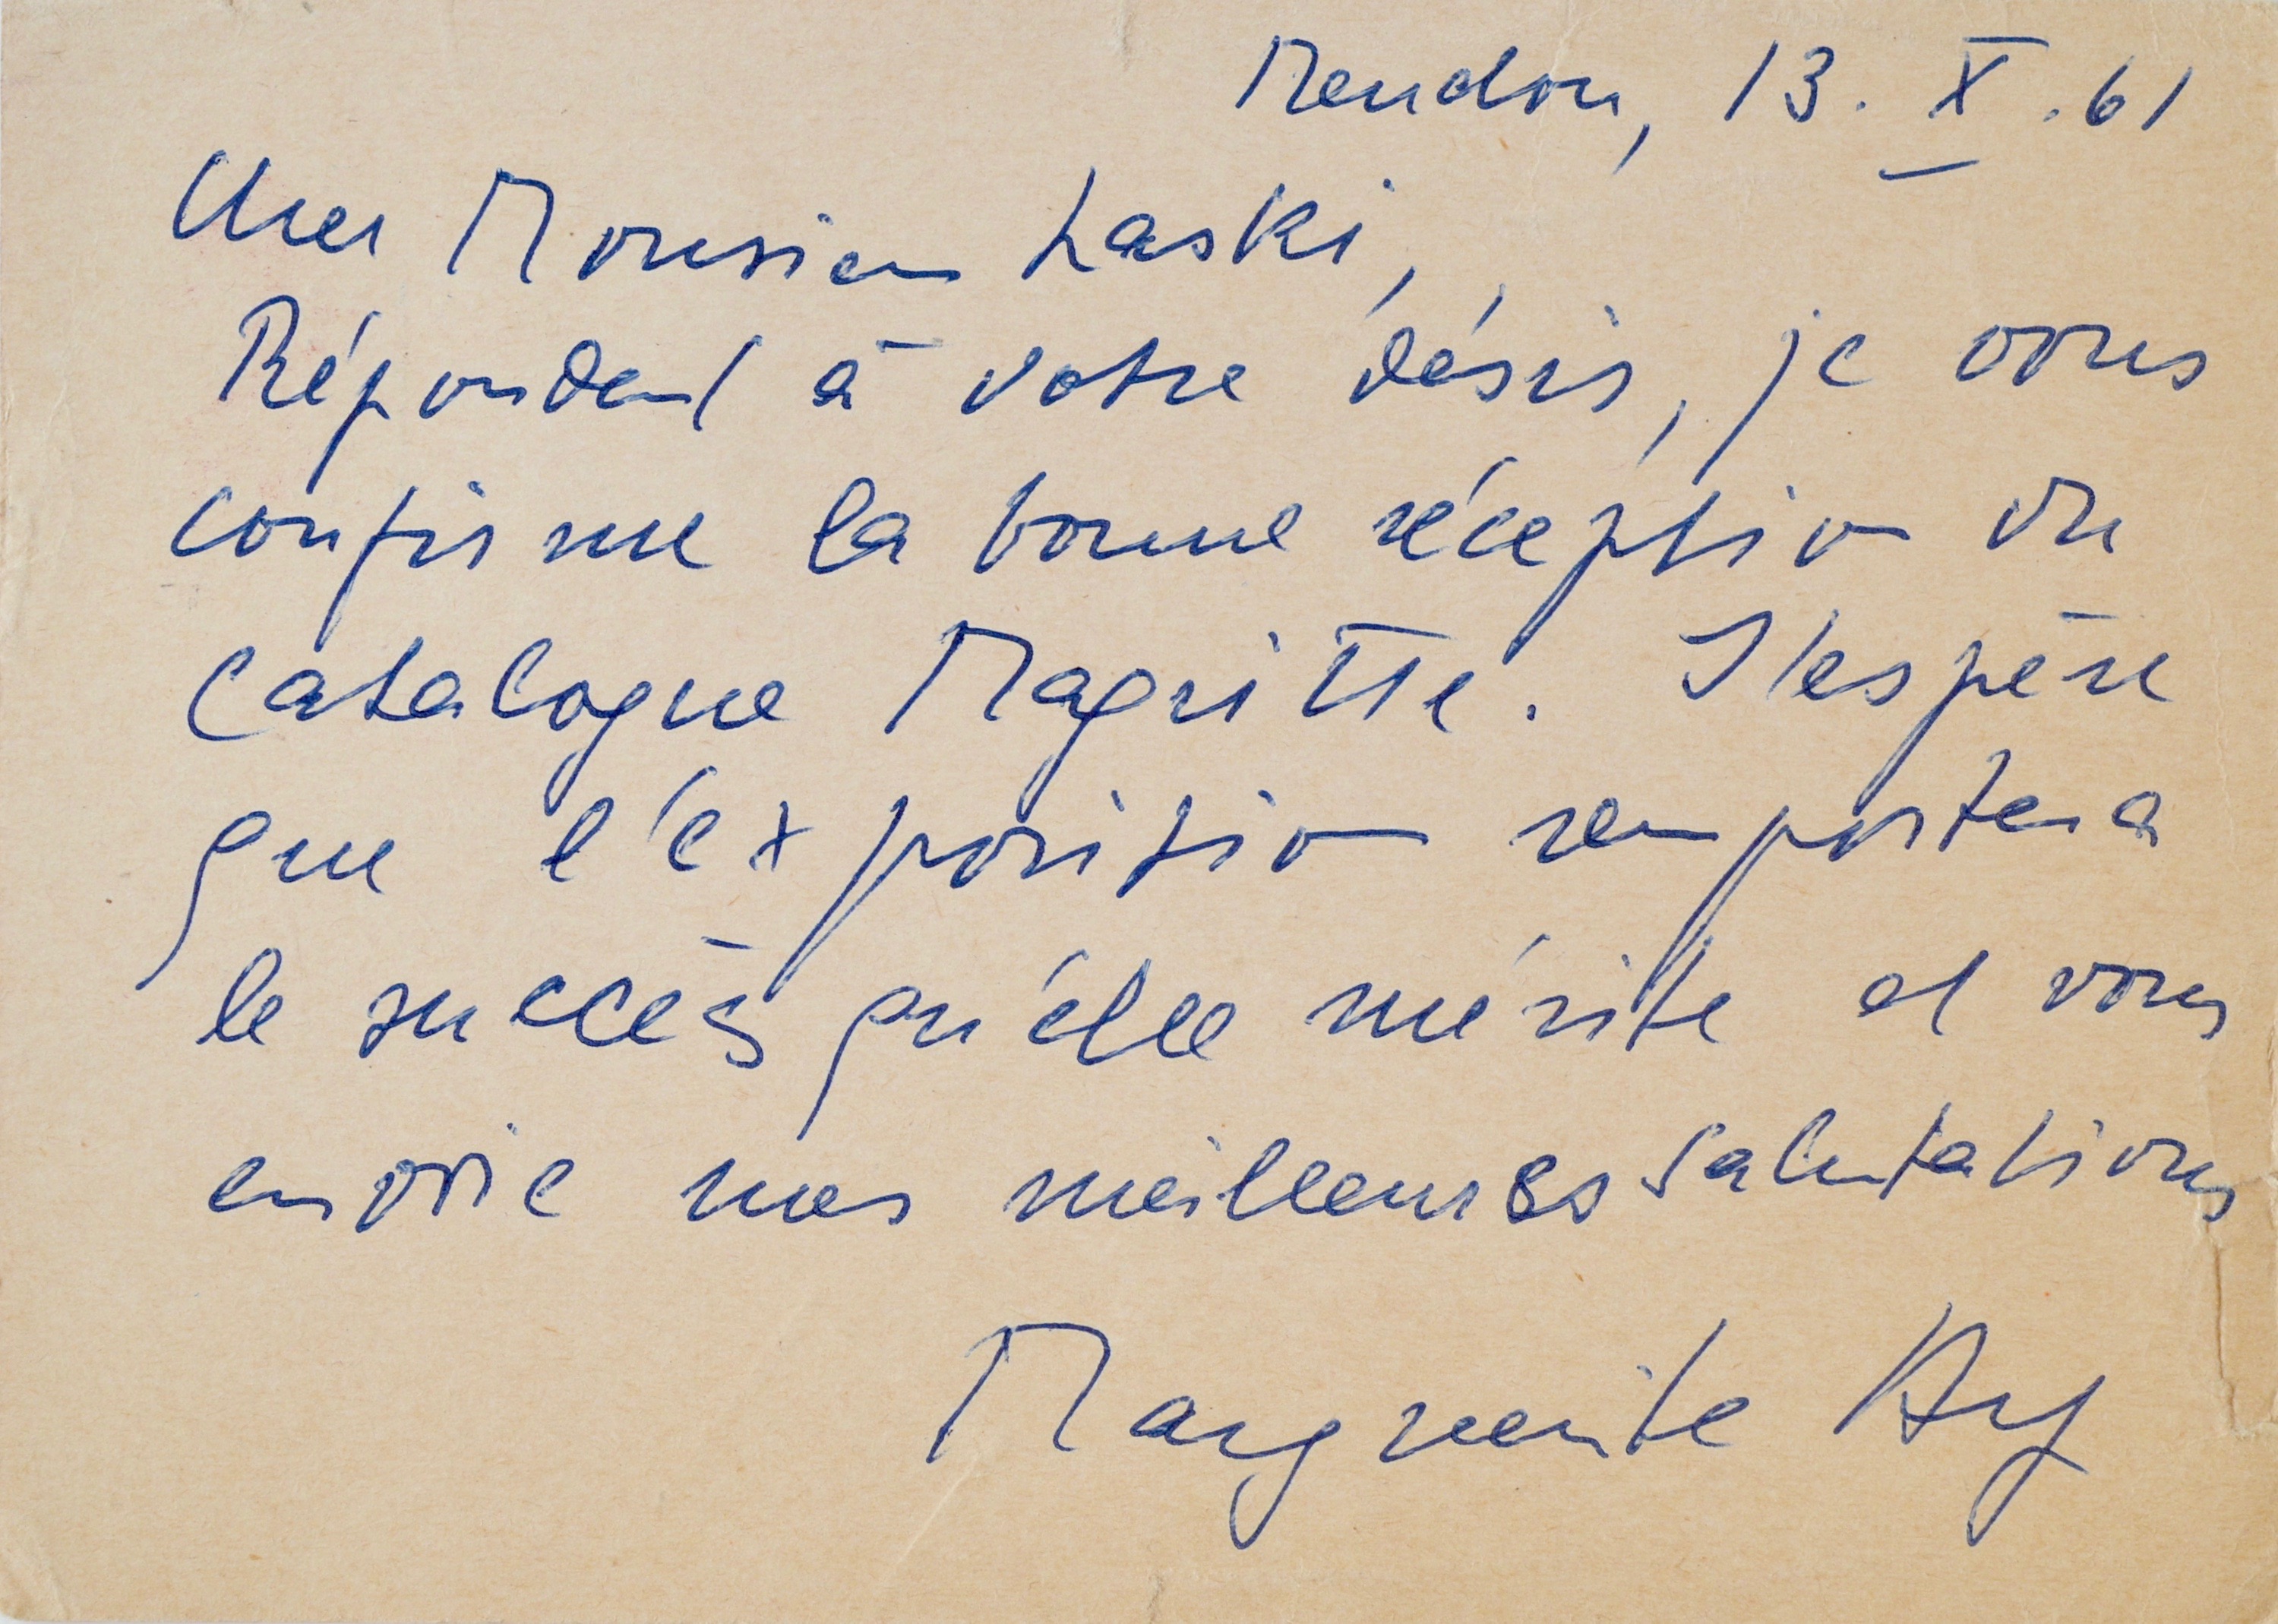 Meudon, 13. X. 61
Cher Monsieur Laski,
Répondant à votre désir, je vous
confirme la bonne réception du
catalogue Magritte. J'espère
que l'exposition remportera
le succès qu'elle mérite et vous
envoie mes meilleures salutations
Marguerite Arp